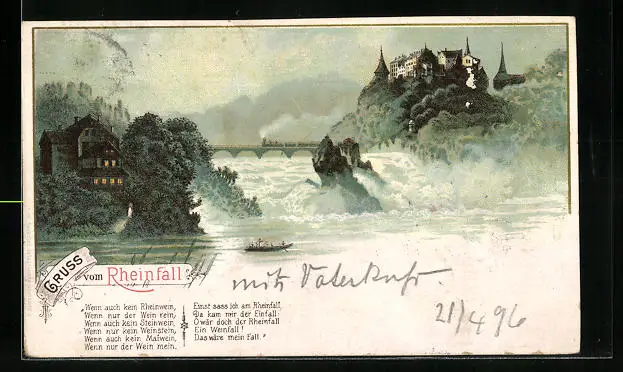 GRUSS
vom Rheinfall
Wenn auch kein Rheinwein,
Wenn nur der Wein rein,
Wenn auch kein Steinwein,
Wenn nur kein Weinstein,
Wenn auch kein Maiwein,
Wenn nur der Wein mein.
Einst sass ich am Rheinfall,
Da kam mir der Einfall:
O wär doch der Rheinfall
Ein Weinfall!
Das wäre mein Fall."
mit
21/4 96